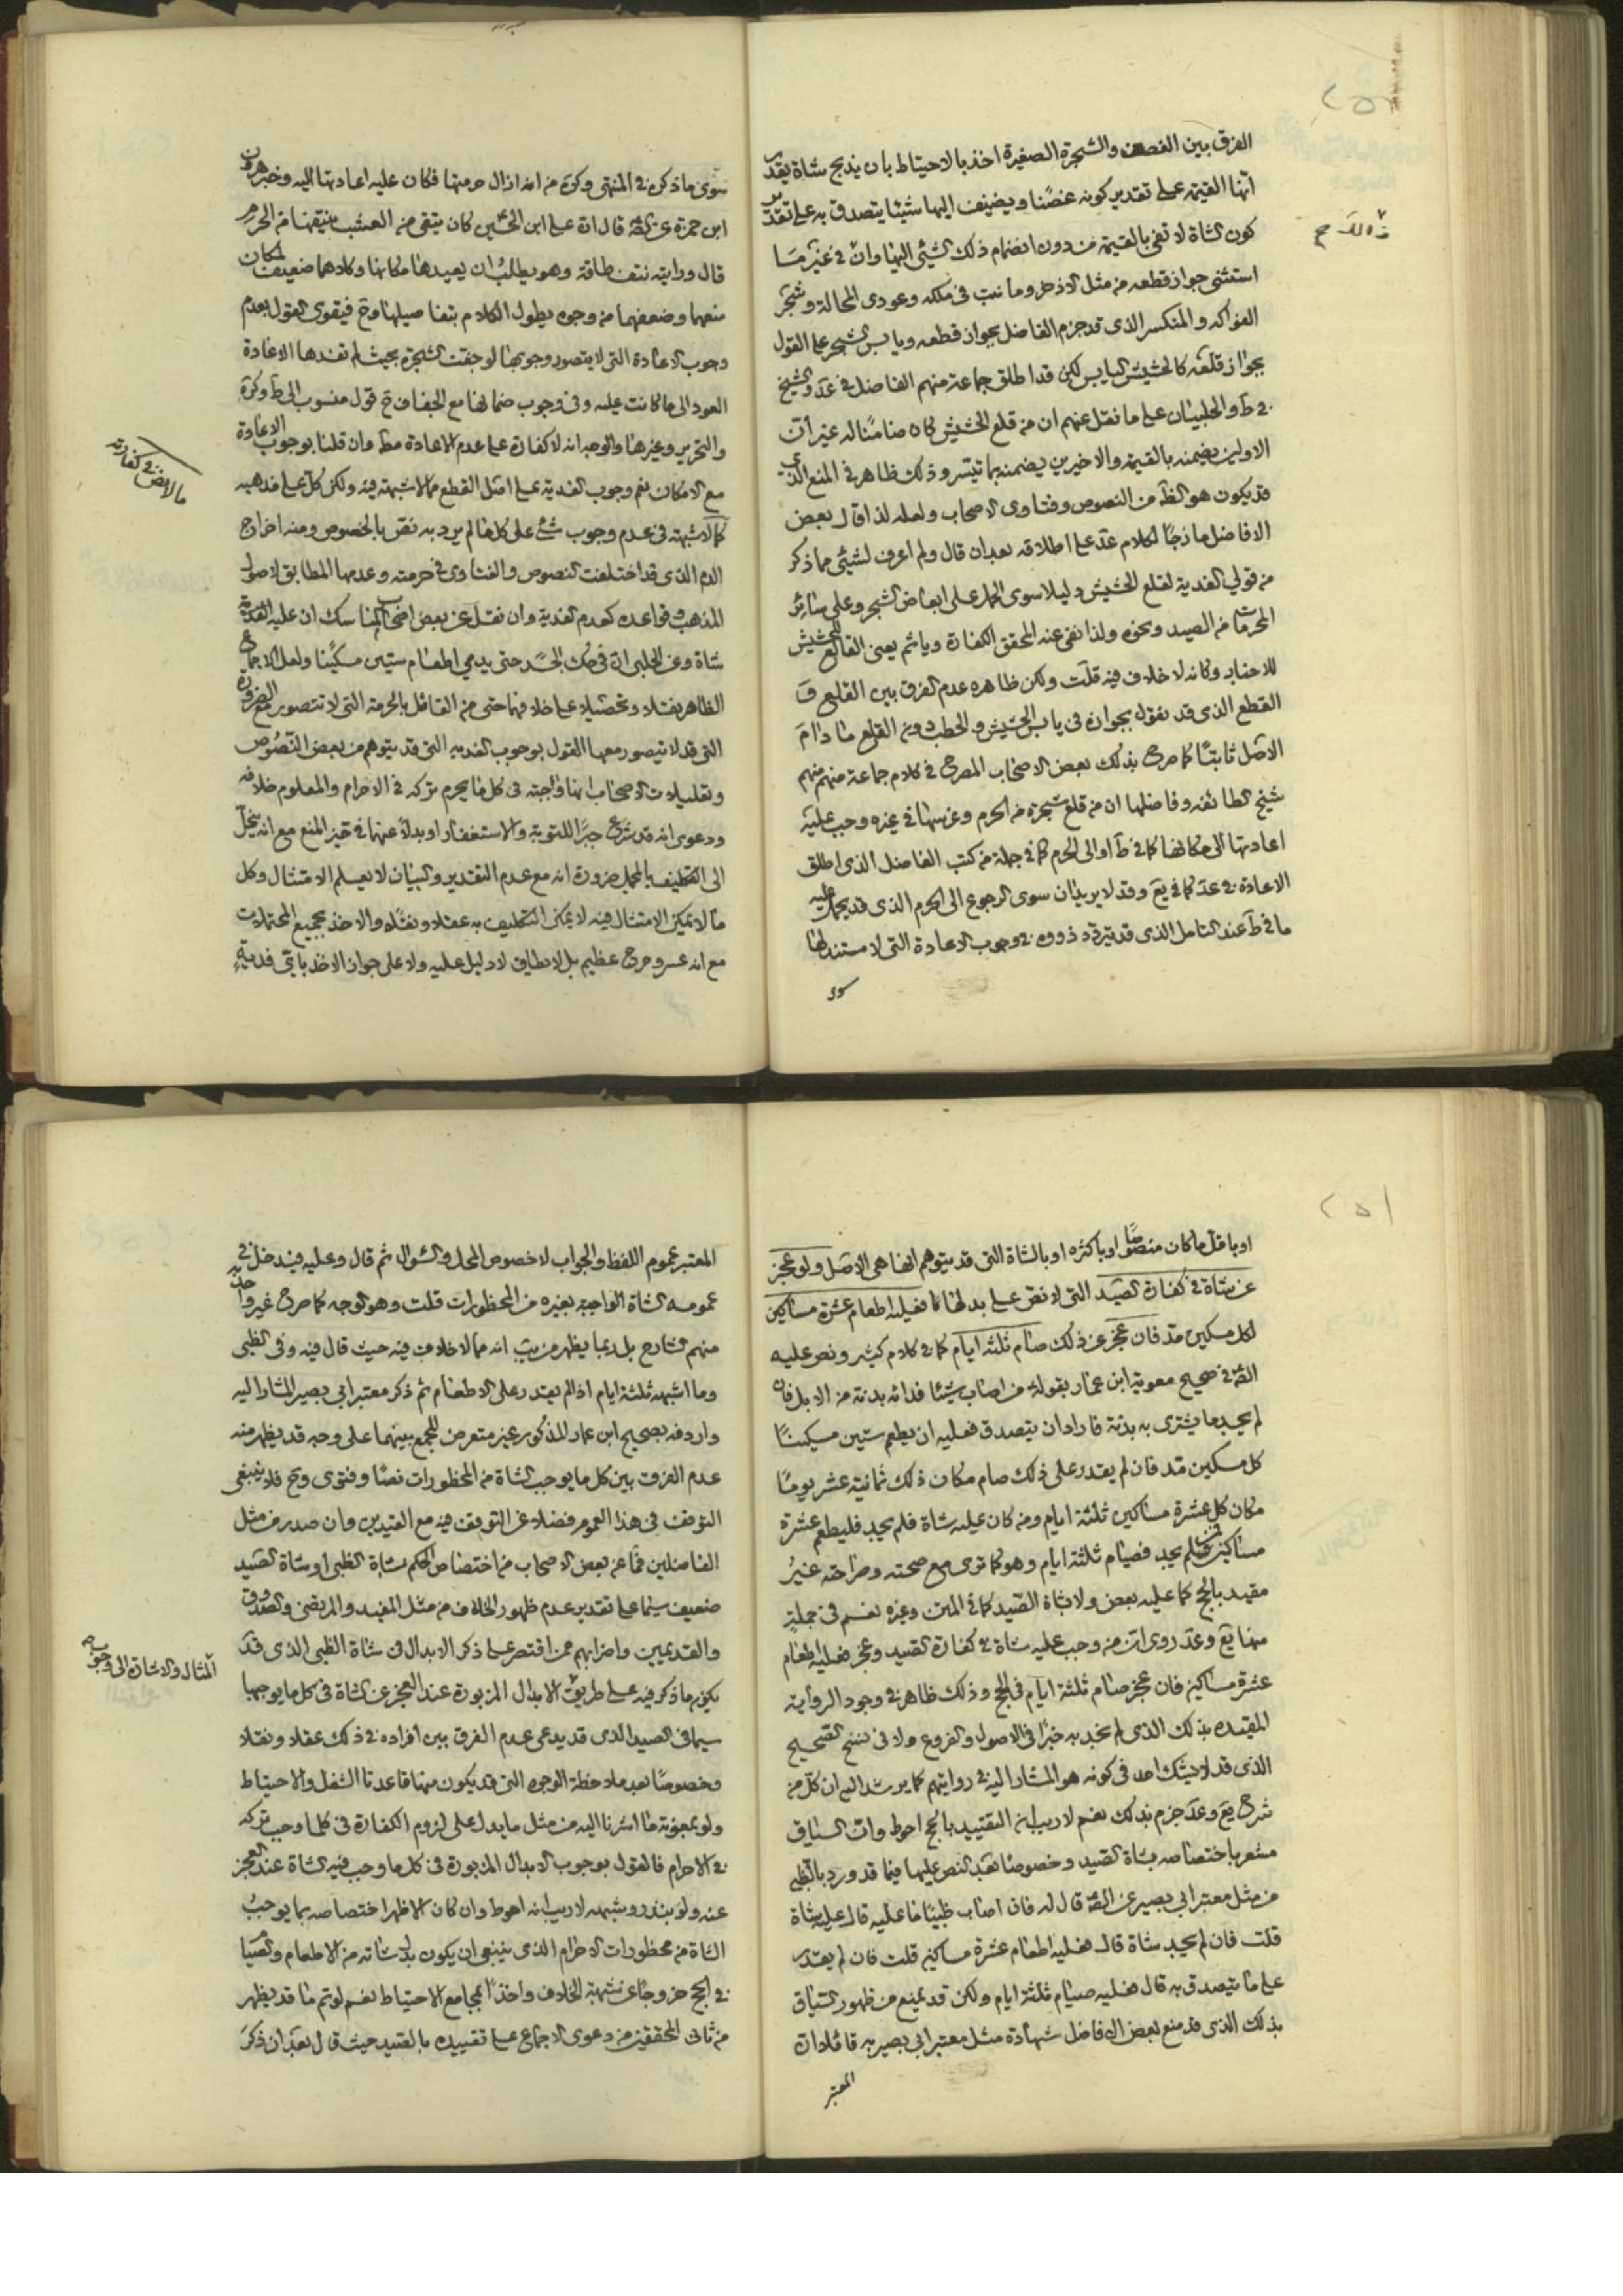 الفرق بين الغصن والشجرة الصغيرة اخذ بالاحتياط بان يذبح شاة يقدر
انها القيمة على تقدير كونه غصنا ويضيف اليها شيئا يتصدق به على تقدير
كون الشاة لا تفى بالقيمة من دون انضمام ذلك الشئى اليها وان فى غير ما
استثنى جواز قطعه من مثل الاذخر وما نبت فى ملكه وعودى المحالة وشجر
الفواكه والمنكسر الذى قد جزم الفاضل بجواز قطعه ويابس الشجر على القول
بجواز قلعه كالحشيش اليابس لكن قد اطلق جماعة منهم الفاضل فى عد والشيخ
فى ط والحلبيان على ما نقل عنهم ان من قلع الحشيش كان ضامنا له غير ان
الاولين يضمنه بالقيمة والاخيرين يضمنه بما تيسر وذلك ظاهر فى المنع الذى
قد يكون هو الظ من النصوص وفتاوى الاصحاب ولعله لذا قال بعض
الافاضل مازجا لكلام عد على اطلاقه بعد ان قال ولم اعرف لشيئى مما ذكر
من قولى الفدية لقلع الحشيش دليلا سوى الحمل على ابعاض الشجر وعلى سائر
المحرمات من الصيد ونحوه ولذا نفى عنه المحقق الكفارة وياثم يعنى القالع للحشيش
للاخبار وكانه لا خلاف فيه قلت ولكن ظاهره عدم الفرق بين القلع و
القطع الذى قد نقول بجوازه فى يابس الحشيش والحطب دون القلع ما دام
الاصل ثابتا كما صرح بذلك بعض الاصحاب المصرح فى كلام جماعة منهم منهم
شيخ الطائفه وفاضلها ان من قلع شجرة من الحرم وغرسها فى غيره وجب عليه
اعادتها الى مكانها كما فى ط او الى الحرم كما فى جملة من كتب الفاضل الذى اطلق
الاعادة فى عد كما فى يع وقد لا يريدان سوى الرجوع الى الحرم الذى قد يحمل عليه
ما فى ط عند التامل الذى قد يتردد ذووه فى وجوب الاعادة التى لا مستند لها
سوى
سوى ما ذكره فى المنتهى وكره من انه ازال حرمتها فكان عليه اعادتها اليه وخبر هرون
ابن حمزة عن الصه قال ان على ابن الحسين كان يتقى من العشب ينتفها من الحرم
قال ورايته نتف طاقة وهو يطلب ان يعيدها مكانها وكلاهما ضعيف لمكان
منعهما وضعفهما من وجوه يطول الكلام بتفاصيلها وح فيقوى القول بعدم
وجوب الاعادة التى لا يتصور وجوبها لو جفت الشجرة بحيث لم تفدها الاعادة
العود الى ما كانت عليه وفى وجوب ضمانها مع الجفاف ح قول منسوب الى ط وكره
والتحرير وغيرها والوجه انه لا كفارة على عدم الاعادة مط وان قلنا بوجوب الاعادة
مع الامكان نعم وجوب الفدية على اصل القطع مما لا شبهة فيه ولكن كل على مذهبه
كما لا شبهة فى عدم وجوب شئ على كل ما لم يرد به نص بالخصوص ومنه اخراج
الدم الذى قد اختلفت النصوص والفتاوى فى حرمته وعدمها المطابق لاصول
المذهب وقواعده كعدم الفدية وان نقل عن بعض اصحاب المناسك ان عليه الفدية
شاة وعن الحلبى ان فى حك الجسد حتى يدمى اطعام ستين مسكينا ولعل الاجماع
الظاهر نقلا وتحصيلا على خلافهما حتى من القائل بالحرمة التى لا تتصور مع الضرورة
التى قد لا يتصور معها القول بوجوب الفدية التى قد يتوهم من بعض النصوص
وتعليلات الاصحاب انها واجبة فى كل ما يحرم تركه فى الاحرام والمعلوم خلافه
ودعوى انه قد شرع جبرا للتوبة والاستغفار او بدلا عنهما فى حيز المنع مع انه ينجر
الى التكليف بالمجمل ضرورة انه مع عدم التقدير والبيان لا يعلم الامتثال وكل
ما لا يمكن الامتثال فيه لا يمكن التكليف به عقلا ونقلا والاخذ بجميع المحتملات
مع انه عسر وحرج عظيم بل لا يطاق لا دليل عليه ولا على جواز الاخذ باقى فدية
ما لا نص فى كفارته
او باقل ما كان منصوصا او باكثره او بالشاة التى قد يتوهم انها هى الاصل ولو عجز
عن شاة فى كفارة الصيد التى لا نص على بدلها كما فعليه اطعام عشرة مساكين
لكل مسكين مد فان عجز عن ذلك صام ثلثة ايام كما فى كلام كثير ونص عليه
الصه فى صحيح معوية ابن عمار بقوله من اصاب شيئا فدائه بدنة من الابل فان
لم يجد ما يشترى به بدنة فاراد ان يتصدق فعليه ان يطعم ستين مسكينا
كل مسكين مد فان لم يقدر على ذلك صام مكان ذلك ثمانية عشر يوما
مكان كل عشرة مساكين ثلثة ايام ومن كان عليه شاة فلم يجد فليطعم عشرة
مساكين فمن لم يجد فصيام ثلثة ايام وهو كما ترى مع صحته وصراحته غير
مقيد بالحج كما عليه بعض ولا بشاة الصيد كما فى المتن وغيره نعم فى جملة
منها يع وعد روى ان من وجب عليه شاة فى كفارة الصيد وعجز فعليه اطعام
عشرة مساكين فان عجز صام ثلثة ايام فى الحج وذلك ظاهر فى وجود الرواية
المقيده بذلك الذى لم نجد به خبرا فى الاصول والفروع ولا فى نسخ الصحيح
الذى قد لا يشك احد فى كونه هو المشار اليه فى روايتهم كما يرشد اليه ان كل من
شرح يع وعد جزم بذلك نعم لا ريب ان التقييد بالحج احوط وان السياق
مشعر باختصاصه بشاة الصيد وخصوصا بعد النص عليها فيما قد ورد بالظبى
من مثل معتبر ابى بصير عن الصه قال له فان اصاب ظبيا ما عليه قال عليه شاة
قلت فان لم يجد شاة قال فعليه اطعام عشرة مساكين قلت فان لم يقدر
على ما يتصدق به قال فعليه صيام ثلثة ايام ولكن قد يمنع من ظهور السياق
بذلك الذى قد منع بعض الافاضل شهادة مثل معتبر ابى بصير به قائلا ان
المعتبر
المعتبر عموم اللفظ والجواب لا خصوص المحل والسؤال ثم قال وعليه فيدخل فى
عمومه الشاة الواجبة بغيره من المحظورات قلت وهو الوجه كما صرح غير واحد
منهم الشارح بل ربما يظهر من يب انه مما لا خلاف فيه حيث قال فيه وفى الظبى
وما اشبهه ثلثة ايام اذا لم يقدر على الاطعام ثم ذكر معتبر ابى بصير المشار اليه
واردفه بصحيح ابن عمار المذكور غير متعرض للجمع بينهما على وجه قد يظهر منه
عدم الفرق بين كل ما يوجب الشاة من المحظورات نصا وفتوى وح فلا ينبغى
التوقف فى هذا العموم فضلا عن التوقف فيه مع القيدين وان صدر من مثل
الفاضلين فما عن بعض الاصحاب من اختصاص الحكم بشاة الظبى او شاة الصيد
ضعيف سيما على تقدير عدم ظهور الخلاف من مثل المفيد والمرتضى والصدوق
والقديمين واضرابهم ممن اقتصر على ذكر الابدال فى شاة الظبى الذى قد
يكون ما ذكر فيه على طريق الابدال المزبورة عند العجز عن الشاة فى كل ما يوجبها
سيما فى الصيد الذى قد يدعى عدم الفرق بين افراده فى ذلك عقلا ونقلا
وخصوصا بعد ملاحظة الوجوه التى قد يكون منها قاعدتا الشغل والاحتياط
ولو بمعونة ما اشرنا اليه من مثل ما يدل على لزوم الكفارة فى كلما وجب تركه
فى الاحرام فالقول بوجوب الابدال المزبورة فى كل ما وجب فيه الشاة عند العجز
عنه ولو بنذر وشبهه لا ريب انه احوط وان كان الاظهر اختصاصه بما يوجب
الشاة من محظورات الاحرام الذى ينبغى ان يكون بدل شاته من الاطعام والصيام
فى الحج خروجا عن شبهة الخلاف واخذا بمجامع الاحتياط نعم لو تم ما قد يظهر
من ثانى المحققين من دعوى الاجماع على تقييده بالصيد حيث قال بعد ان ذكر
المثال والاشارة الى وجوبه